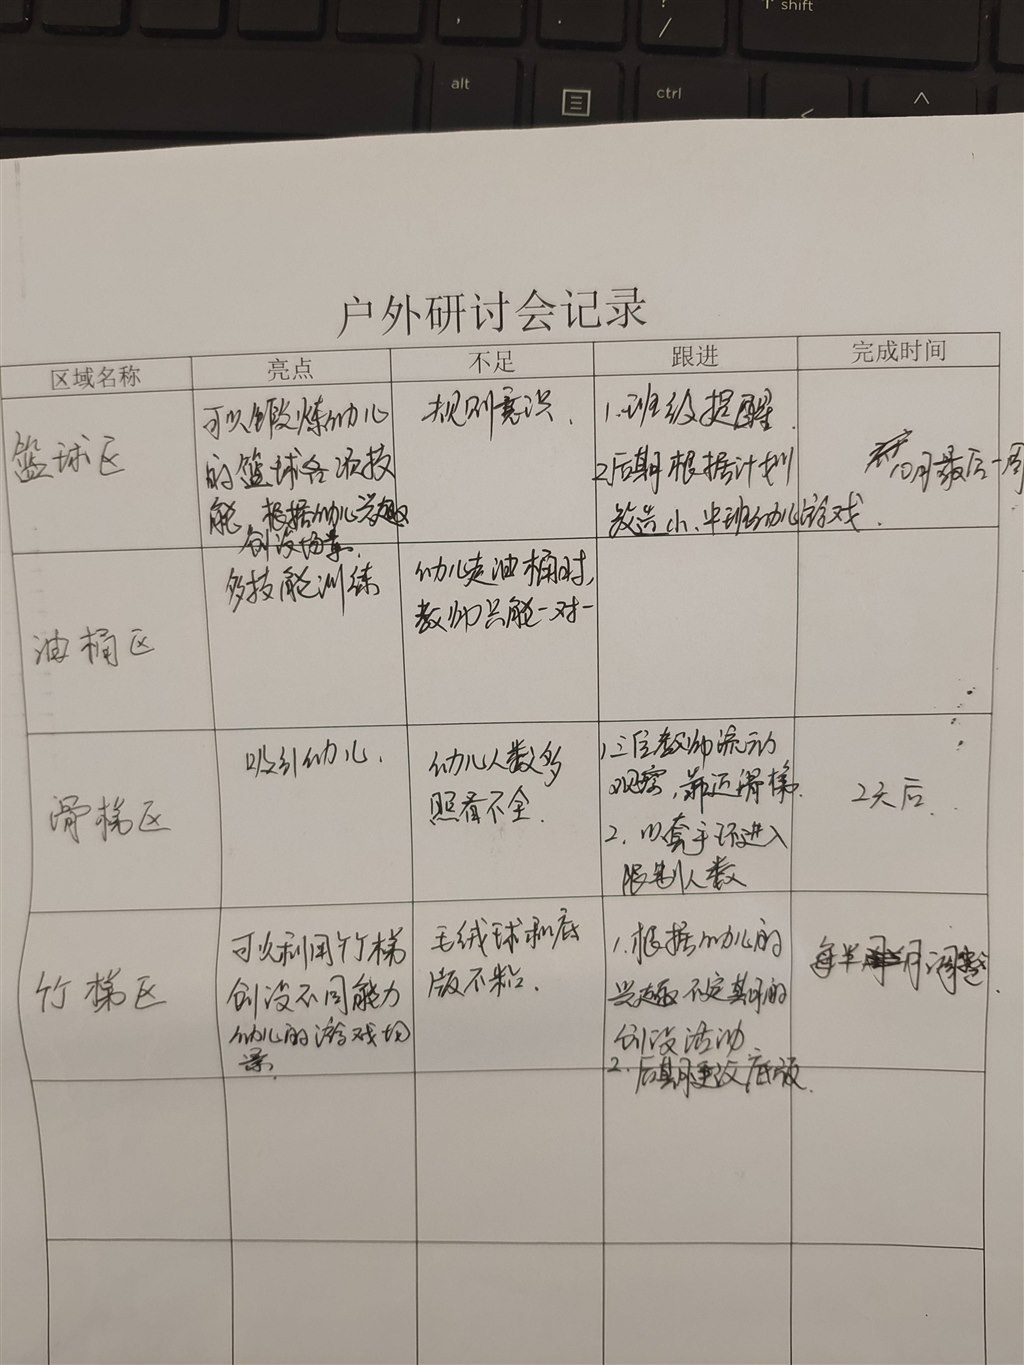 shift
alt
ctrl
户外研讨会记录
区域名称 亮点 不足 跟进 完成时间
篮球区
可以锻炼幼儿
的篮球各项技
能,根据幼儿兴趣
创设场景.
规则意识.
1.班级提醒.
2.后期根据计划
改造小、中班幼儿游戏.
10月最后一周
油桶区
多技能训练
幼儿走油桶时,
教师只能一对一
滑梯区
吸引幼儿.
幼儿人数多
照看不全.
1.三位教师流动
观察,靠近滑梯.
2.以套手环进入
限制人数
2天后.
竹梯区
可以利用竹梯
创设不同能力
幼儿的游戏场
景.
毛绒球和底
版不粘.
1.根据幼儿的
兴趣不定期的
创设活动
2.后期更改底版.
每半月调整.